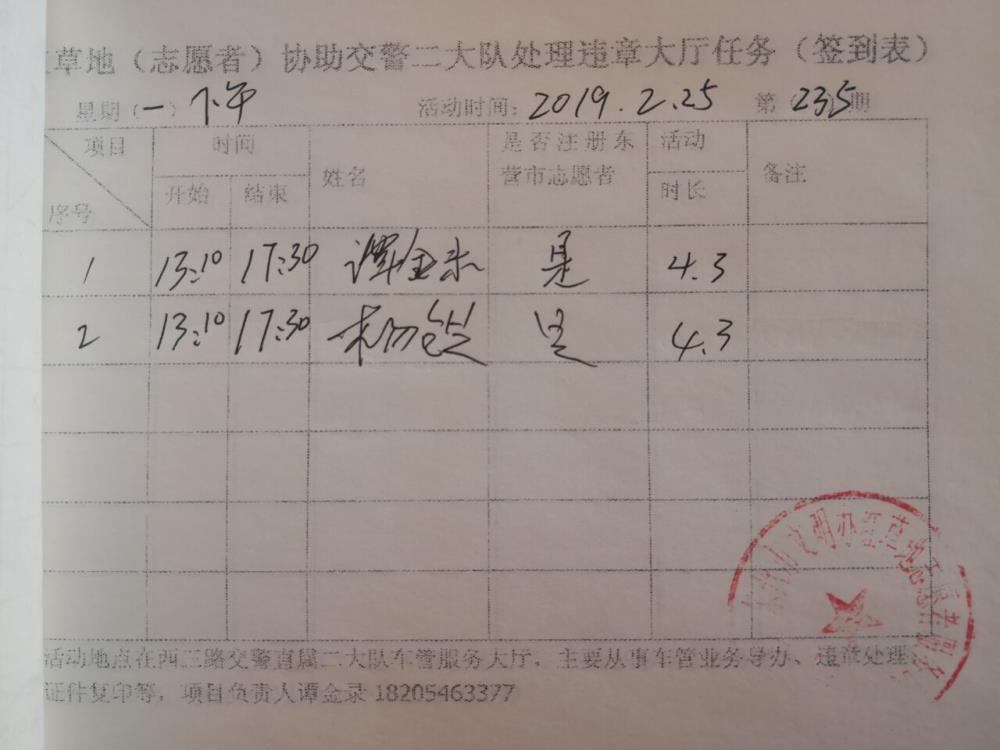 草地（志愿者）协助交警二大队处理违章大厅任务（签到表）
星期（一）下午 活动时间：2019.2.25 第（235）期
项目 时间 姓名 是否注册东营市志愿者 活动时长 备注
序号 开始 结束
1 13:10 17:30 谭金录 是 4.3
2 13:10 17:30 是 4.3
活动地点在西二路交警直属二大队车管服务大厅，主要从事车管业务导办、违章处理、
证件复印等，项目负责人谭金录 18205463377